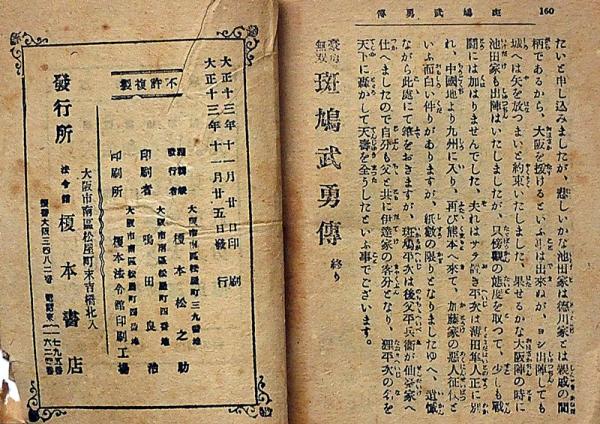 160
斑鳩武勇傳
たいと申し込みましたが、悲しいかな池田家は德川家とは親戚の間
柄であるから、大阪を援けるといふ事は出來ぬが、ヨシ出陣しても
城へは矢を放つまいと約束いたしました。果せるかな大阪陣の時に
池田家も出陣はいたしましたが、只傍觀の態度を取つて、少しも戰
鬪には加はりませんでした。夫れはサテ措き平次は薄田隼人正に別
れ、中國地より九州に入り、再び熊本へ來て、加藤家の惡人征伐と
いふ面白い件りがありますが、紙數の限りとなりましたゆへ、遺憾
ながら此處にて筆をおきますが、斑鳩平次は後父平兵衞が仙臺家へ
仕へましたので自分も父と共に伊達家の客分となり、平次の名を
天下に轟かして天壽を全うしたといふ事でございます。
豪勇無双 斑鳩武勇傳 終り
不許複製
大正十三年十一月廿日印刷
大正十三年十一月廿五日發行
大阪市南區松屋町三九番地
發行者 榎本松之助
大阪市南區松屋町四番地
印刷者 鳴田良治
大阪市南區松屋町四番地
印刷所 榎本法令館印刷工場
大阪市南區松屋町末吉橋北入
發行所 法令館 榎本書店
振替大阪三四八二番